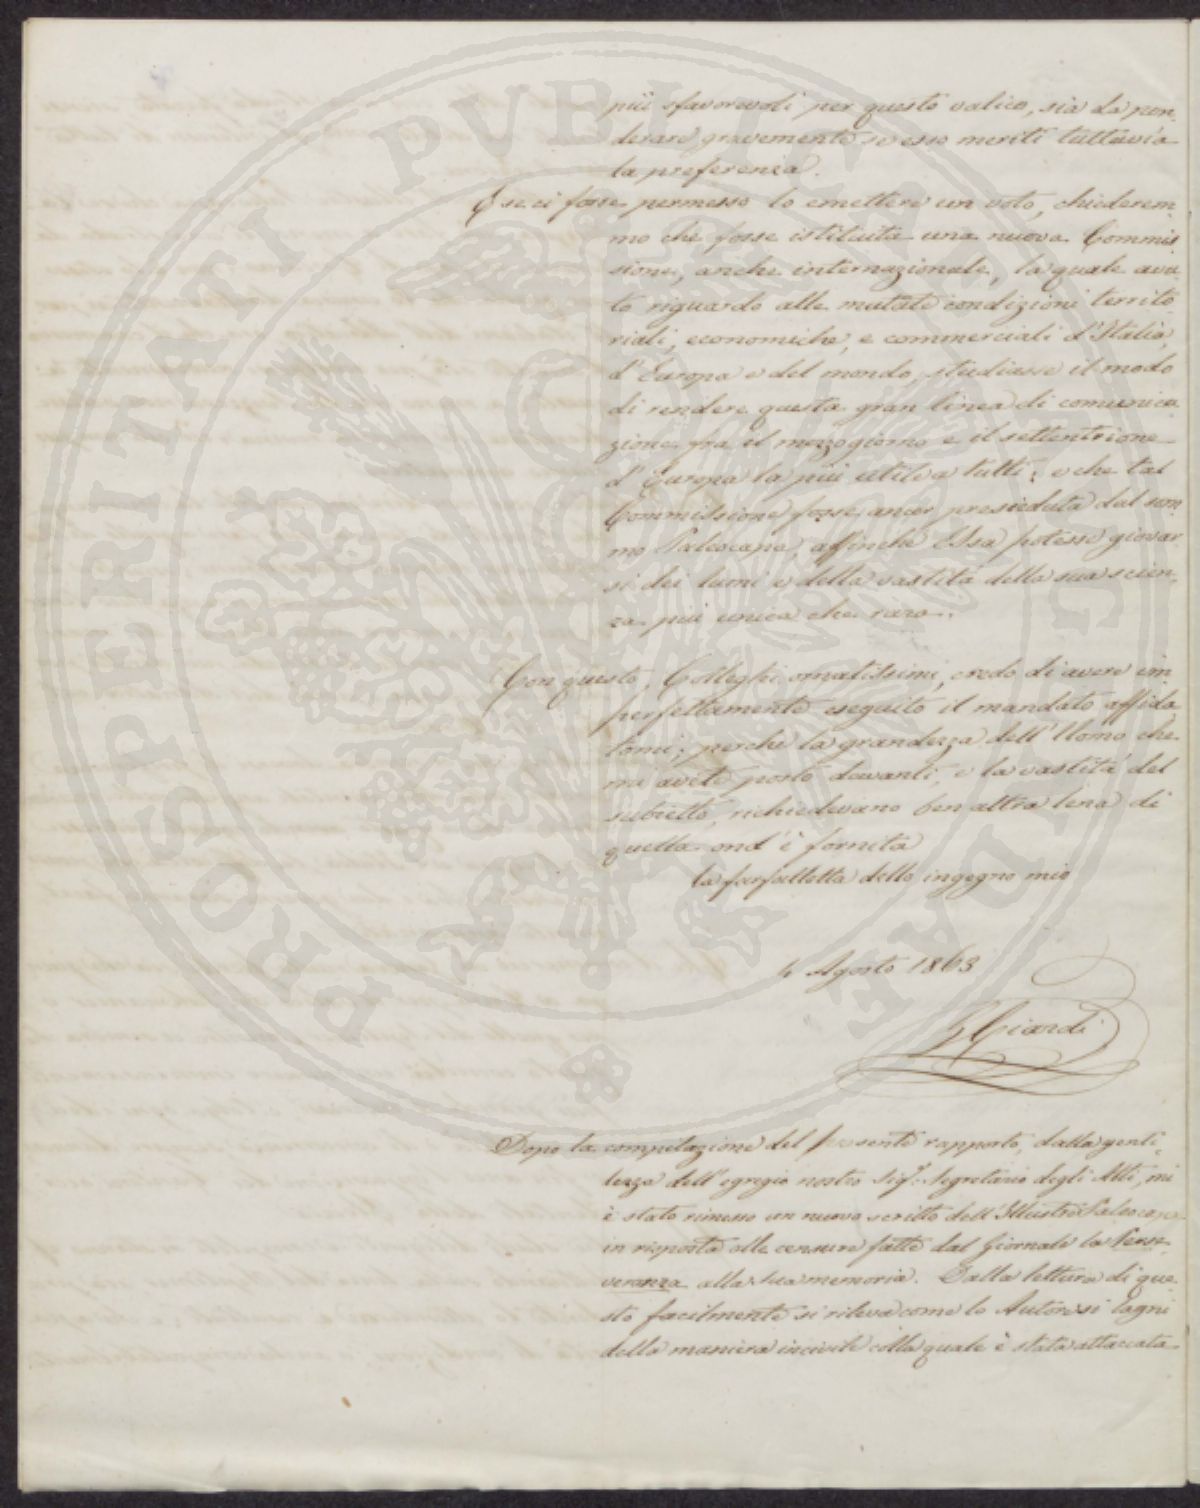 più sfavorevoli per questo valico, sia da pon-
derare gravemente se esso meriti tuttavia
la preferenza.
E se ci fosse permesso lo emettere un voto, chiederem-
mo che fosse istituita una nuova Commis
sione, anche internazionale, la quale avu-
to riguardo alle mutate condizioni territo
riali, economiche, e commerciali d'Italia,
d'Europa e del mondo, studiasse il modo
di rendere questa gran linea di comunica
zione fra il mezzogiorno e il settentrione
d'Europa la più utile a tutti; e che tal
Commissione fosse ancor presieduta dal som
mo Paleocapa, affinchè Essa potesse giovar
si dei lumi e della vastità della sua scien-
za più unica che rara.
Con questo, Colleghi ornatissimi, credo di avere im
perfettamente eseguito il mandato affida
tomi; perchè la grandezza dell'Uomo che
mi avete posto davanti, e la vastità del
subietto, richiedevano ben altra lena di
quella ond'è fornita
la farfalletta dello ingegno mio
4 Agosto 1863
G Giardi
Dopo la compilazione del presente rapporto, dalla genti-
lezza dell'egregio nostro Sig.r Segretario degli Atti, mi
è stato rimesso un nuovo scritto dell'Illustre Paleocapa
in risposta alle censure fatte dal Giornale la Perse
veranza alla sua memoria. Dalla lettura di que
sto facilmente si rileva come lo Autore si lagni
della maniera incivile colla quale è stata attaccata
PROSPERITATI PVBLICAE